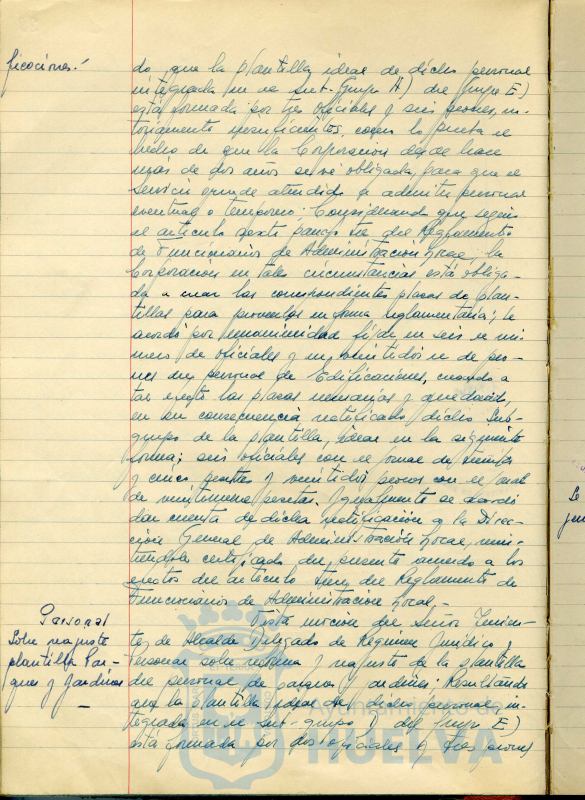 ficaciones.-
do que la plantilla ideal de dicho personal
integrada en el sub-Grupo A) del Grupo E)
está formada por tres oficiales y seis peones, no-
toriamente insuficientes, como lo prueba el
hecho de que la Corporación desde hace
más de dos años se ve obligada, para que el
servicio quede atendido a admitir personal
eventual o temporero; Considerando que según
el artículo sexto párrafo del Reglamento
de Funcionarios de Administración Local, la
Corporación en tales circunstancias está obliga-
da a crear las correspondientes plazas de plan-
tillas para proveerlas en forma reglamentaria; se
acordó por unanimidad fijar en seis el nú-
mero de oficiales y en veintidos el de peo-
nes del personal de Edificaciones, creando a
tal efecto las plazas necesarias y quedando,
en su consecuencia rectificado dicho Sub-
grupo de la plantilla ideal en la siguiente
forma; seis oficiales con el jornal de treinta
y cinco pesetas y veintidos peones con el
de veintinueve pesetas. Igualmente se acordó
dar cuenta de dicha rectificación a la Direc-
ción General de Administración Local, remi-
tiéndole certificado del presente acuerdo a los
efectos del artículo del Reglamento de
Funcionarios de Administración Local.-
Personal
Sobre reajuste
plantilla Par-
ques y Jardines
Vista moción del Señor Tenien-
te de Alcalde Delegado de Régimen Jurídico y
Personal sobre reforma y reajuste de la plantilla
del personal de parques y jardines: Resultando
que la plantilla ideal de dicho personal in-
tegrada en el sub-grupo del Grupo E)
está formada por dos oficiales y tres peones
Ayuntamiento de
HUELVA
Se